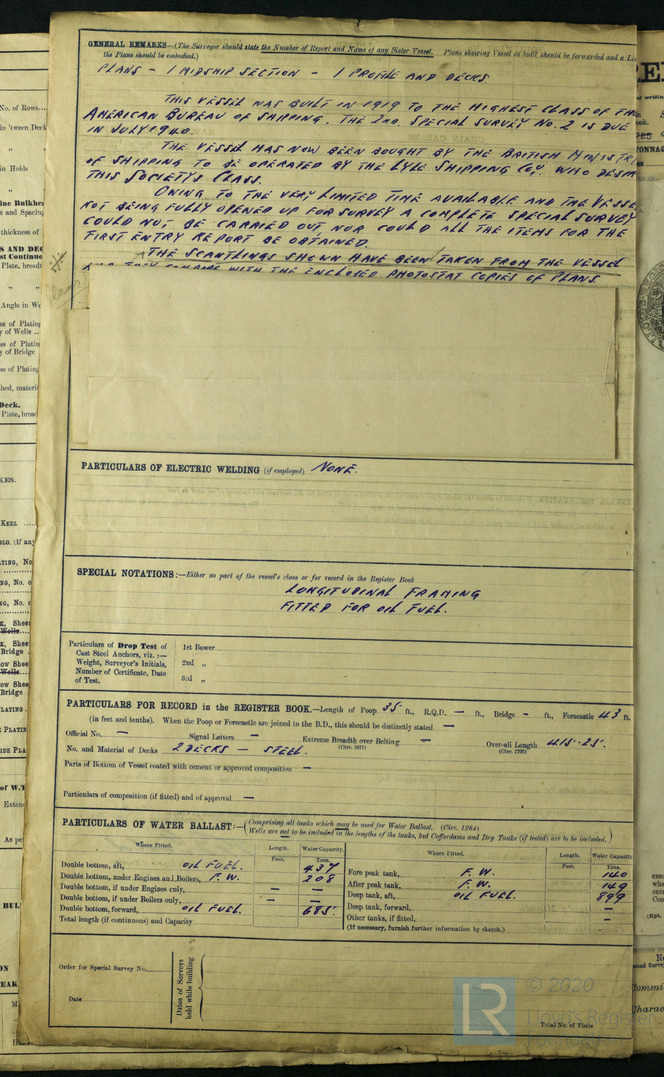 GENERAL REMARKS—(The Surveyor should state the Number of Report and Name of any Sister Vessel. Plans showing Vessel as built should be forwarded and a
the Plans should be embodied.)
PLANS - 1 MIDSHIP SECTION - 1 PROFILE AND DECKS
THIS VESSEL WAS BUILT IN 1919 TO THE HIGHEST CLASS OF THE
AMERICAN BUREAU OF SHIPPING. THE 2ND SPECIAL SURVEY NO. 2 IS DUE
IN JULY 1940.
THE VESSEL HAS NOW BEEN BOUGHT BY THE BRITISH MINISTR
OF SHIPPING TO BE OPERATED BY THE LYLE SHIPPING COY. WHO DESIR
THIS SOCIETY'S CLASS.
OWING TO THE VERY LIMITED TIME AVAILABLE AND THE VESSEL
NOT BEING FULLY OPENED UP FOR SURVEY A COMPLETE SPECIAL SURVEY
COULD NOT BE CARRIED OUT NOR COULD ALL THE ITEMS FOR THE
FIRST ENTRY REPORT BE OBTAINED.
THE SCANTLINGS SHOWN HAVE BEEN TAKEN FROM THE VESSEL
AND THEY COMPARE WITH THE ENCLOSED PHOTOSTAT COPIES OF PLANS.
PARTICULARS OF ELECTRIC WELDING (if employed) NONE.
SPECIAL NOTATIONS:—Either as part of the vessel's class or for record in the Register Book
LONGITUDINAL FRAMING
FITTED FOR OIL FUEL.
Particulars of Drop Test of
Cast Steel Anchors, viz.:—
Weight, Surveyor's Initials,
Number of Certificate, Date
of Test.
1st Bower
2nd „
3rd „
PARTICULARS FOR RECORD in the REGISTER BOOK.—Length of Poop 35 ft., R.Q.D. — ft., Bridge - ft., Forecastle 43 ft.
(in feet and tenths). When the Poop or Forecastle are joined to the B.D., this should be distinctly stated —
Official No. — Signal Letters — Extreme Breadth over Belting — Over-all Length 415.25.
(Circ. 1611) (Circ. 1703)
No. and Material of Decks 2 DECKS — STEEL.
Parts of Bottom of Vessel coated with cement or approved composition —
Particulars of composition (if fitted) and of approval —
PARTICULARS OF WATER BALLAST:—(Comprising all tanks which may be used for Water Ballast. (Circ. 1284)
Wells are not to be included in the lengths of the tanks, but Cofferdams and Dry Tanks (if tested) are to be included.)
Where Fitted. Length. Water Capacity.
Feet. Tons.
Double bottom, aft, OIL FUEL. 437
Double bottom, under Engines and Boilers, F.W. 208
Double bottom, if under Engines only, — —
Double bottom, if under Boilers only, — —
Double bottom, forward, OIL FUEL. 685.
Total length (if continuous) and Capacity
Where Fitted. Length. Water Capacity
Feet. Tons.
Fore peak tank, F.W. 140
After peak tank, F.W. 149
Deep tank, aft, OIL FUEL. 899
Deep tank, forward, —
Other tanks, if fitted, —
(If necessary, furnish further information by sketch.)
Order for Special Survey No.
Date
Dates of Surveys
held while building
Total No. of Visits
LR
© 2020
Lloyd's Register